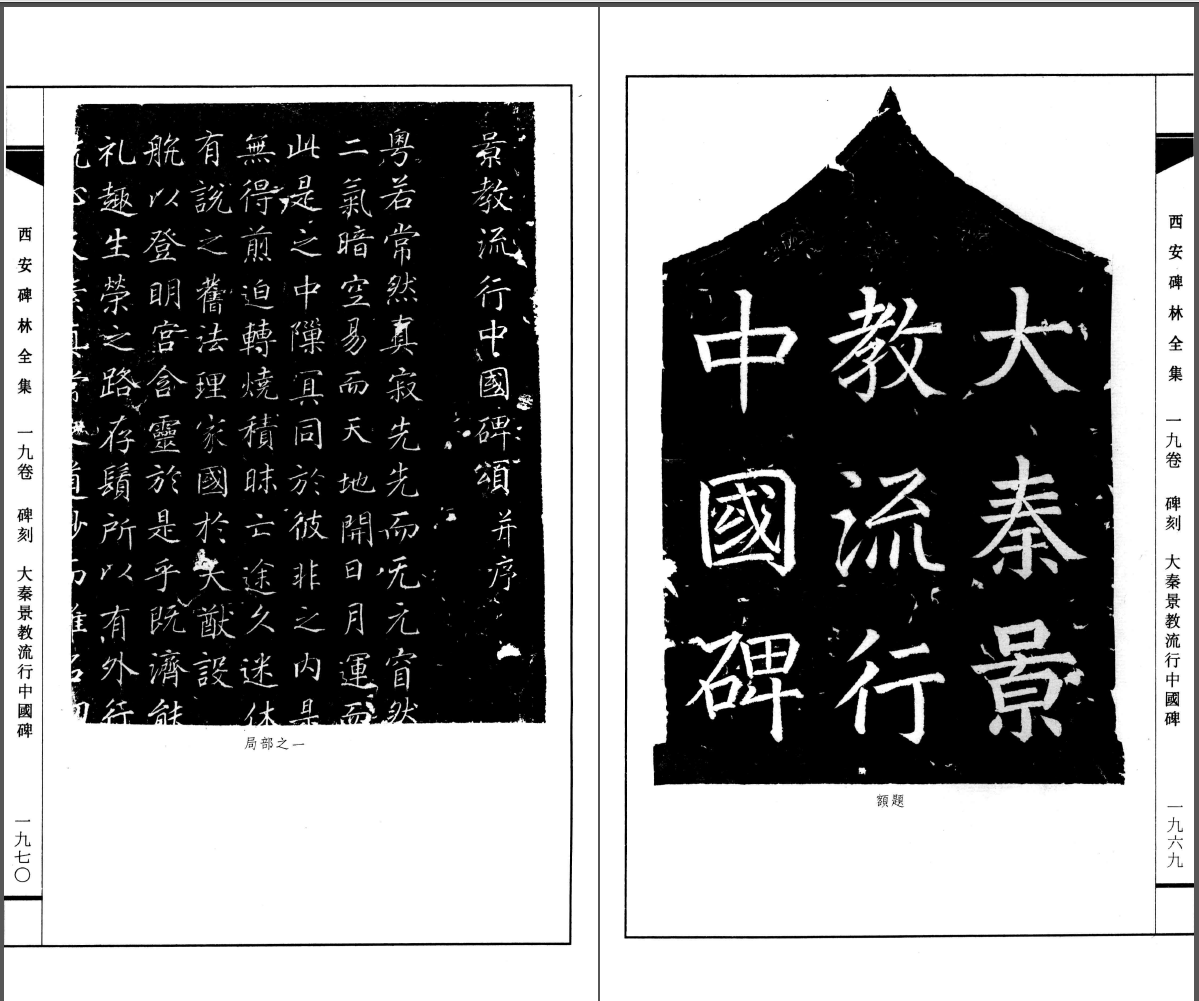 西安碑林全集 一九卷 碑刻 大秦景教流行中國碑 一九六九
大秦景
教流行
中國碑
額題
景教流行中國碑頌 并序
粵若常然真寂先先而无元窅然
二氣暗空易而天地開日月運而
此是之中隟冥同於彼非之內是
無得煎迫轉燒積昧亡途久迷休
有說之舊法理家國於大猷設
以登明宮含靈於是乎既濟能
礼趣生榮之路存鬚所以有外行
局部之一
西安碑林全集 一九卷 碑刻 大秦景教流行中國碑 一九七〇